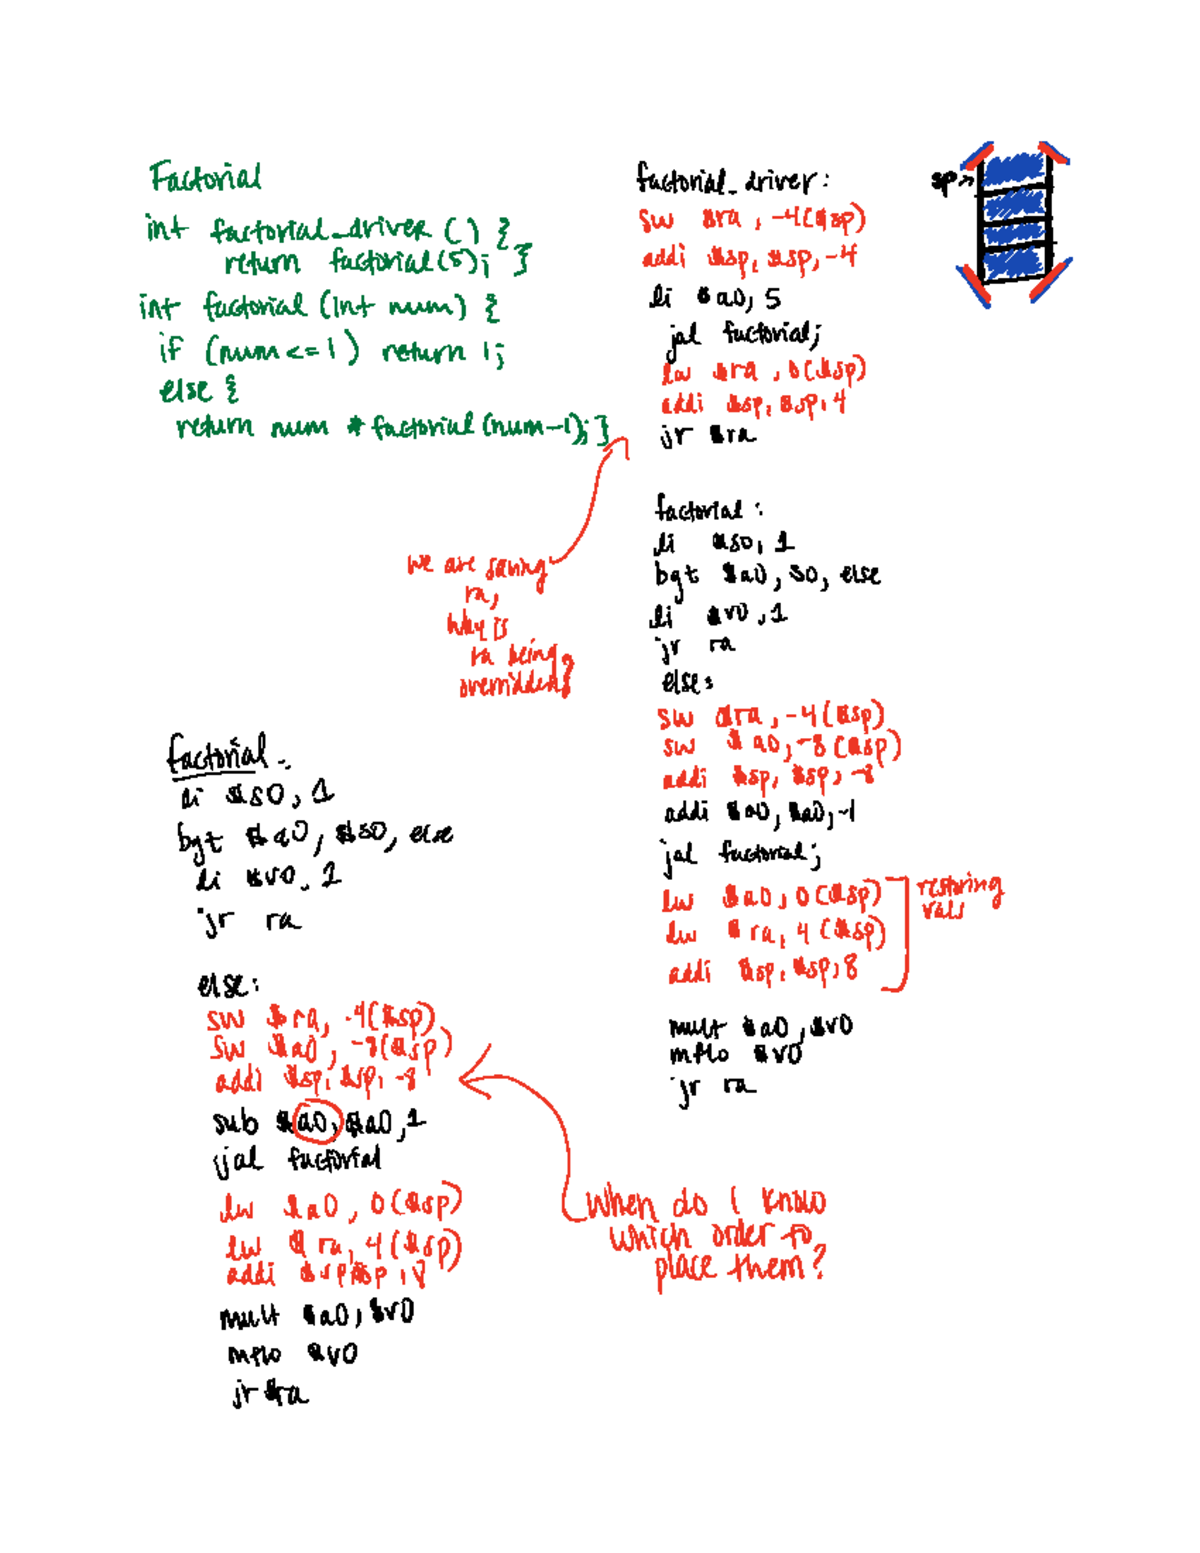 Factorial
int factorial_driver () {
return factorial(5); }
int factorial (int num) {
if (num <= 1) return 1;
else {
return num * factorial(num-1); }
we are saving
ra,
why is
ra being
overridden?
factorial:
li $s0, 1
bgt $a0, $s0, else
li $v0, 1
jr ra
else:
sw $ra, -4($sp)
sw $a0, -8($sp)
addi $sp, $sp, -8
sub $a0, $a0, 1
jal factorial
lw $a0, 0($sp)
lw $ra, 4($sp)
addi $sp $sp, 8
mult $a0, $v0
mflo $v0
jr $ra
When do I know
which order to
place them?
factorial_driver:
sw $ra, -4($sp)
addi $sp, $sp, -4
li $a0, 5
jal factorial;
lw $ra, 0($sp)
addi $sp, $sp, 4
jr $ra
factorial:
li $s0, 1
bgt $a0, s0, else
li $v0, 1
jr ra
else:
sw $ra, -4($sp)
sw $a0, -8($sp)
addi $sp, $sp, -8
addi $a0, $a0, -1
jal factorial;
lw $a0, 0($sp)
lw $ra, 4($sp)
addi $sp, $sp, 8
restoring
vals
mult $a0, $v0
mflo $v0
jr ra
sp